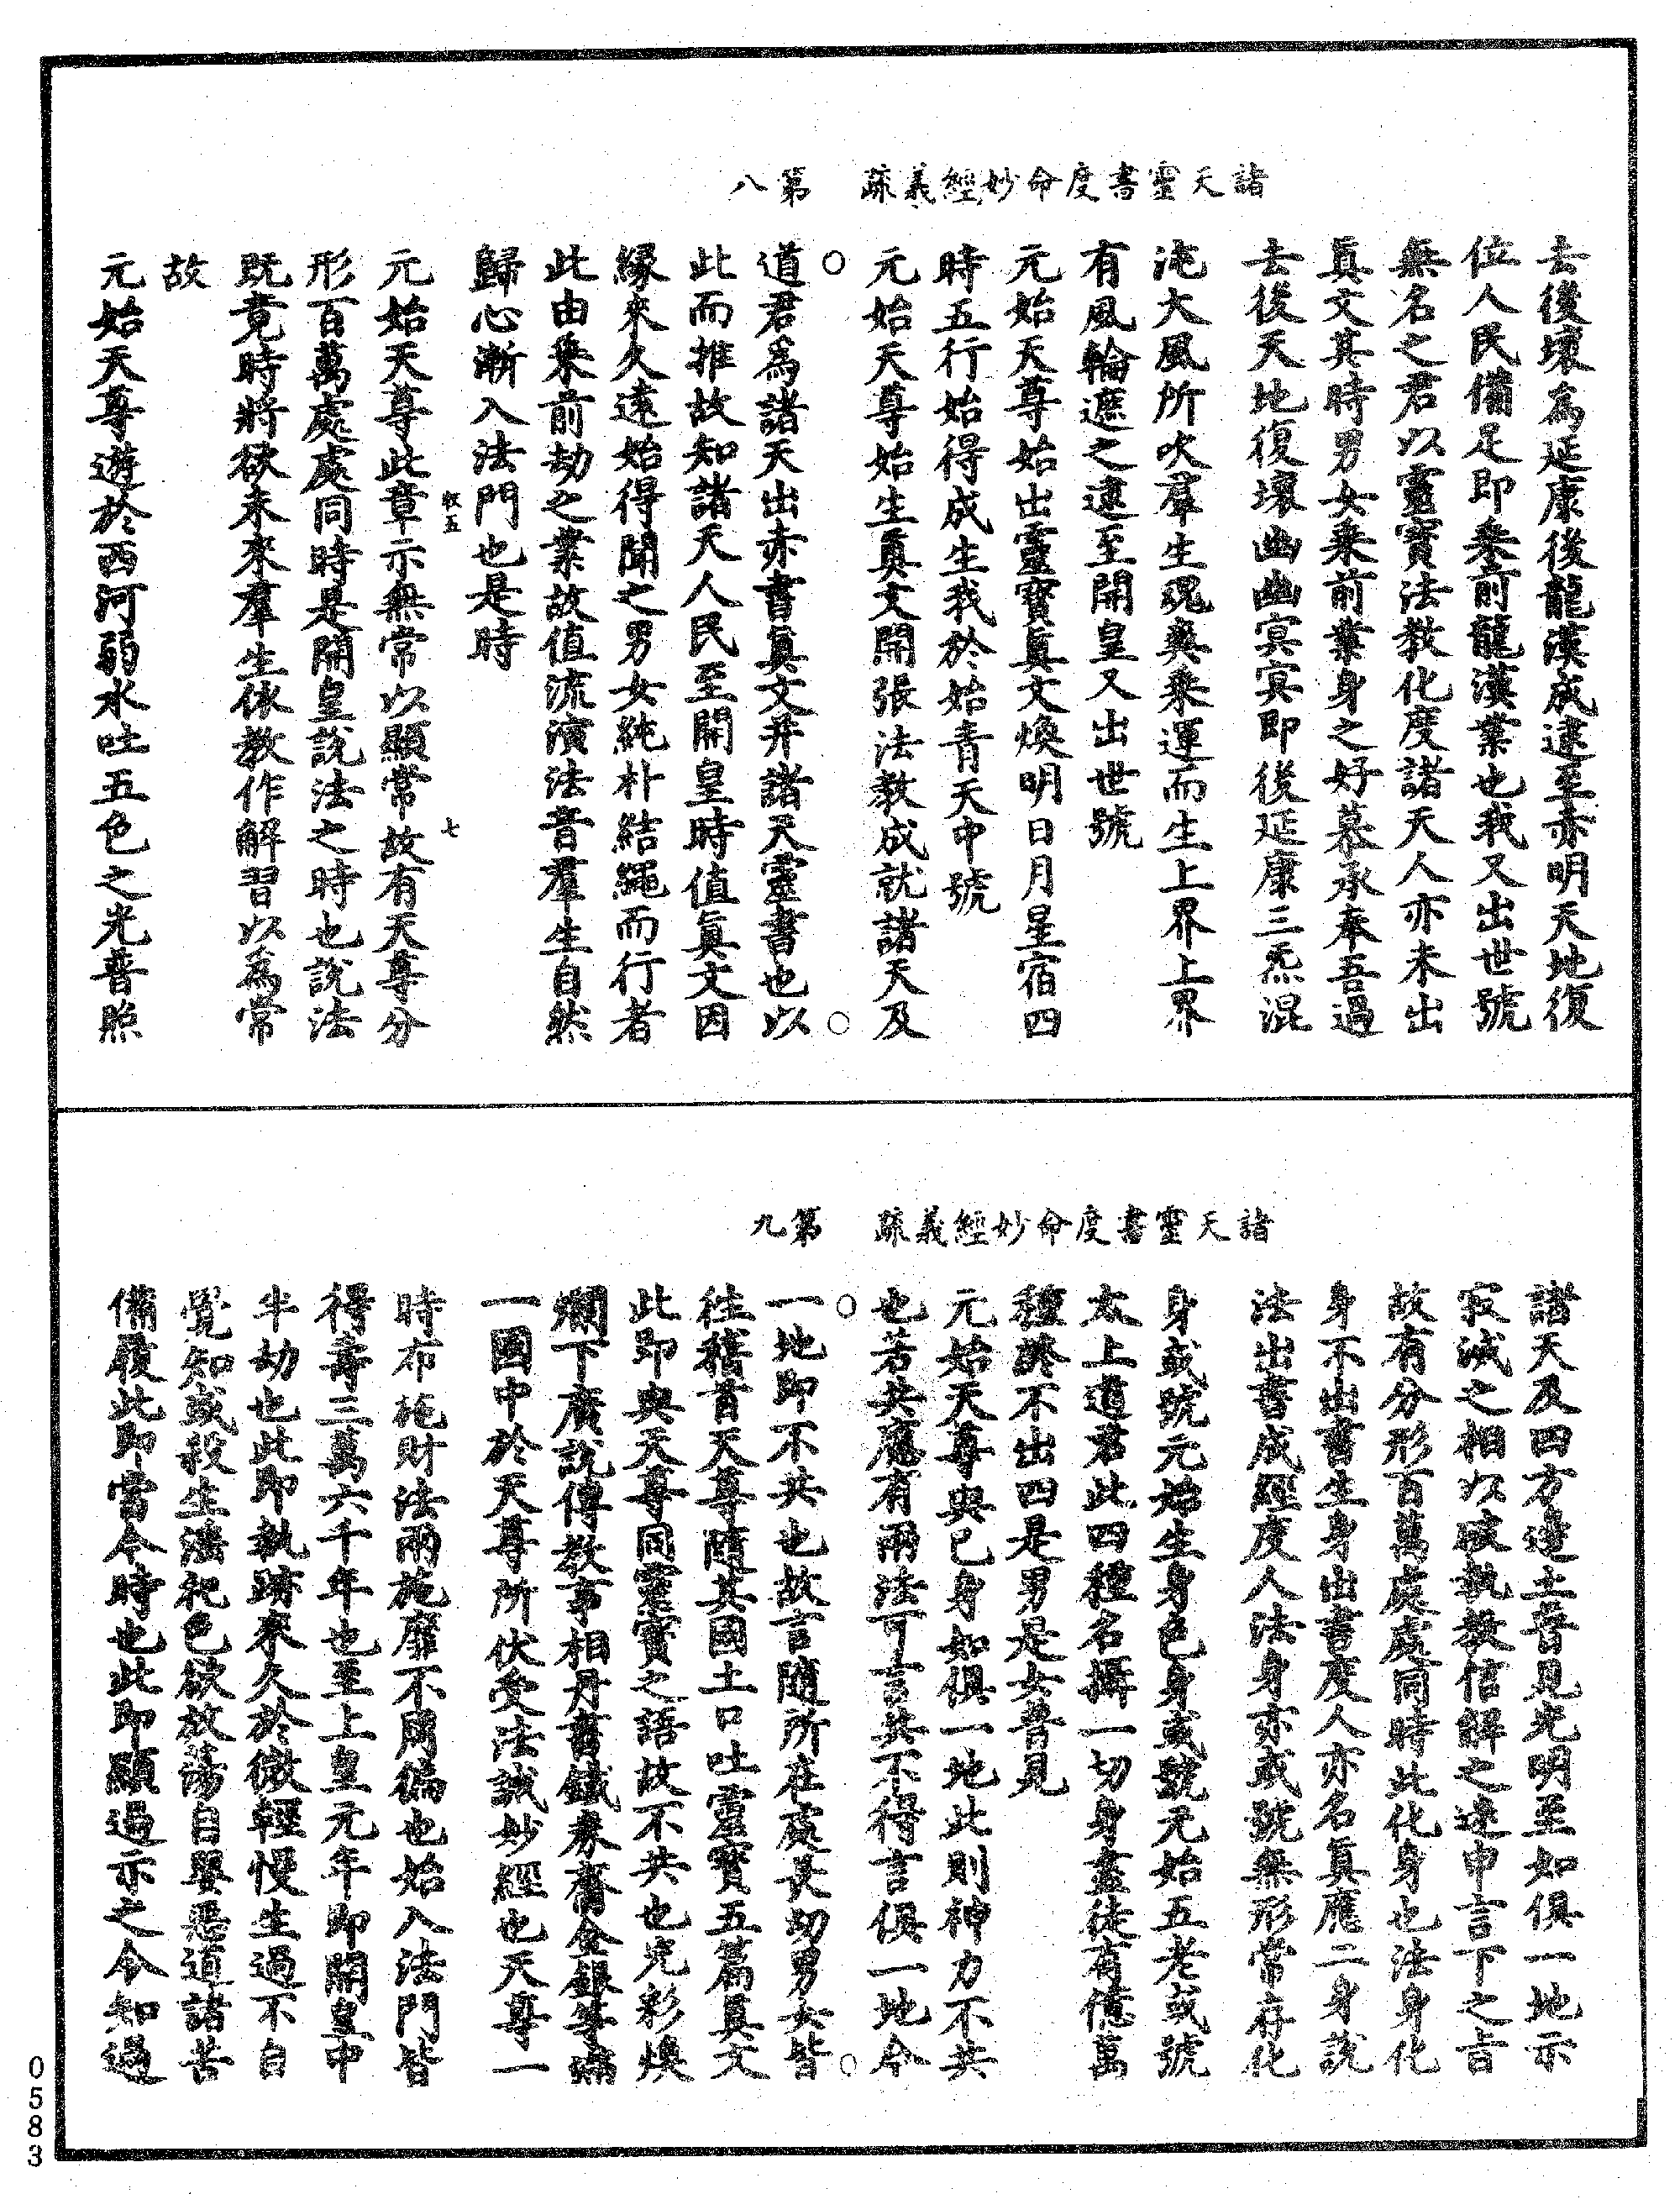 諸天靈書度命妙經義疏　第八
去後壞爲延康後龍漢成逮至赤明天地復
位人民備足即乗前龍漢業也我又出世號
無名之君以靈寳法教化度諸天人亦未出
眞文其時男女乗前業身之好慕承奉吾過
去後天地復壞幽幽冥冥即後延康三炁混
沌大風所吹羣生現奐乗運而生上界上界
有風輪遮之逮至開皇又出世號
元始天尊始出靈寳眞文煥明日月星宿四
時五行始得成生我於始青天中號
元始天尊始生眞文開張法教成就諸天及
道君爲諸天出赤書眞文并諸天靈書也以
此而推故知諸天人民至開皇時值眞文因
緣來久遠始得聞之男女純朴結繩而行者
此由乗前劫之業故值流演法音羣生自然
歸心漸入法門也是時
五　七
元始天尊此章示無常以顯常故有天尊分
形百萬處處同時是開皇説法之時也説法
既竟時將欲未來羣生依教作解習以爲常
故
元始天尊遊於西河弱水吐五色之光普照
諸天靈書度命妙經義疏　第九
諸天及四方邊土普見光明至如俱一地示
寂滅之相以破執教信解之迷申言下之旨
故有分形百萬處處同時此化身也法身化
身不出書生身出書度人亦名眞應二身説
法出書成經度人法身亦或號無形常存化
身或號元始生身色身或號元始五老或號
太上道君此四種名攝一切身盡徒有億萬
種終不出四是男是女普見
元始天尊與己身如俱一地此則神力不共
也若共應有兩法可言共不得言俱一地今
一地即不共也故言隨所在處長幼男女皆
往稽首天尊隨其國土口吐靈寳五篇眞文
此即與天尊同靈寳之語故不共也光彩煥
爛下廣説傳教事相丹書鐵券齎金銀等編
一國中於天尊所伏受法誡妙經也天尊一
時布施財法兩施靡不周徧也始入法門皆
得壽三萬六千年也至上皇元年即開皇中
半劫也此即執跡來久於微輕慢生過不自
覺知或殺生淫祀色欲放蕩自嬰愚道諸苦
備履此即當今時也此即顯過示之令知過
0583